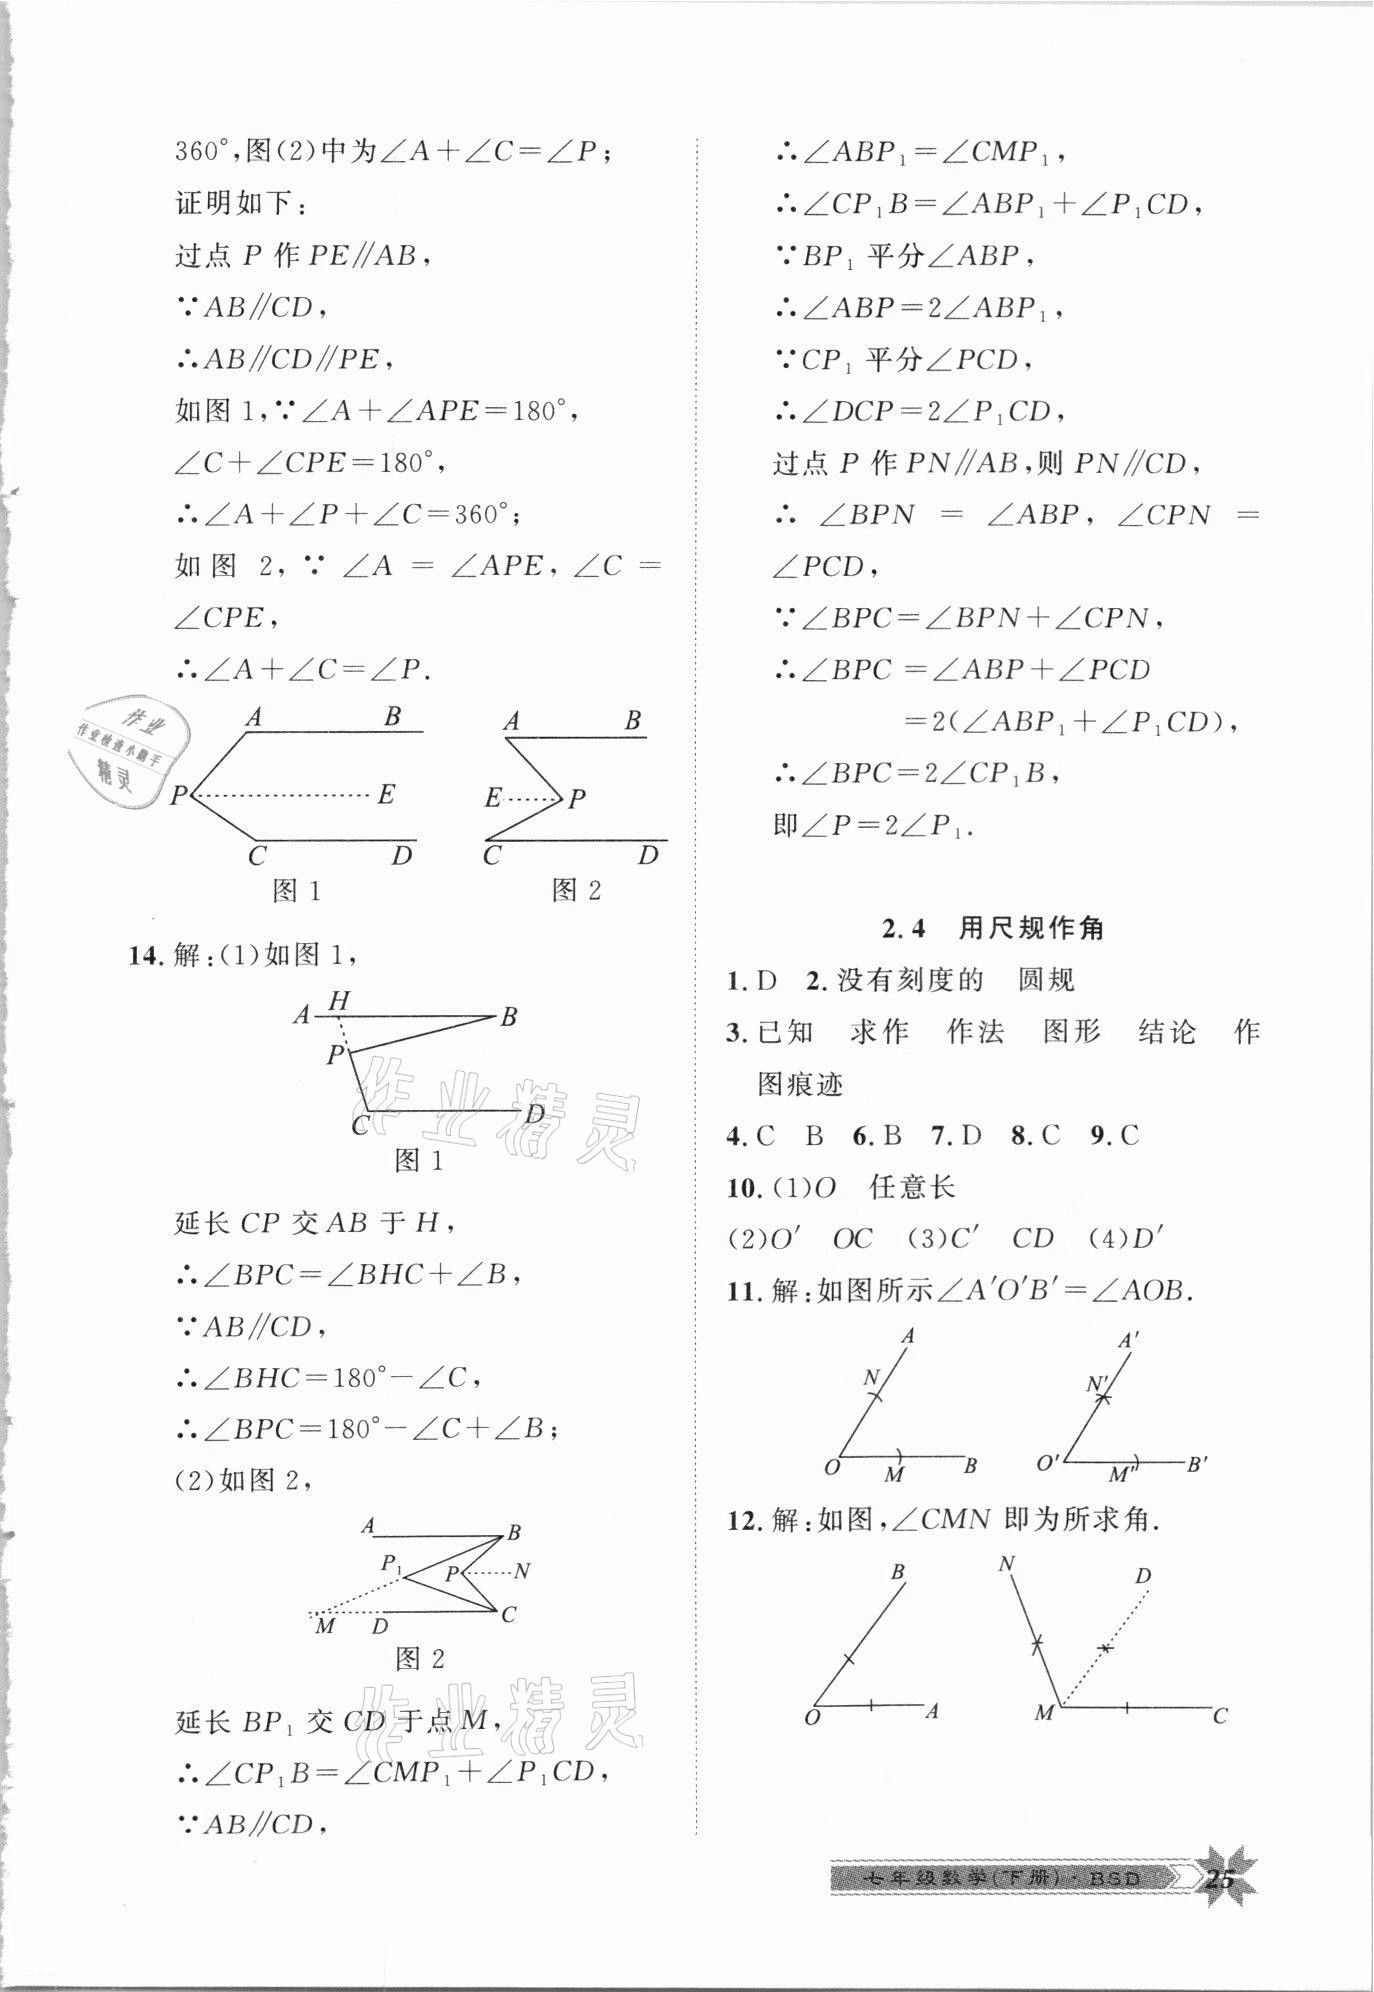 360°,图(2)中为∠A+∠C=∠P;
证明如下:
过点 P 作 PE∥AB,
∵AB∥CD,
∴AB∥CD∥PE,
如图 1,∵∠A+∠APE=180°,
∠C+∠CPE=180°,
∴∠A+∠P+∠C=360°;
如图 2, ∵ ∠A = ∠APE, ∠C =
∠CPE,
∴∠A+∠C=∠P.
A B
P E
C D
图 1
A B
E P
C D
图 2
14.解:(1)如图 1,
A H B
P
C D
图 1
延长 CP 交 AB 于 H,
∴∠BPC=∠BHC+∠B,
∵AB∥CD,
∴∠BHC=180°-∠C,
∴∠BPC=180°-∠C+∠B;
(2)如图 2,
A B
P₁ P N
M D C
图 2
延长 BP₁ 交 CD 于点 M,
∴∠CP₁B=∠CMP₁+∠P₁CD,
∵AB∥CD,
∴∠ABP₁=∠CMP₁,
∴∠CP₁B=∠ABP₁+∠P₁CD,
∵BP₁ 平分∠ABP,
∴∠ABP=2∠ABP₁,
∵CP₁ 平分∠PCD,
∴∠DCP=2∠P₁CD,
过点 P 作 PN∥AB,则 PN∥CD,
∴ ∠BPN = ∠ABP, ∠CPN =
∠PCD,
∵∠BPC=∠BPN+∠CPN,
∴∠BPC=∠ABP+∠PCD
=2(∠ABP₁+∠P₁CD),
∴∠BPC=2∠CP₁B,
即∠P=2∠P₁.
2.4 用尺规作角
1.D 2.没有刻度的 圆规
3.已知 求作 作法 图形 结论 作
图痕迹
4.C B 6.B 7.D 8.C 9.C
10.(1)O 任意长
(2)O′ OC (3)C′ CD (4)D′
11.解:如图所示∠A′O′B′=∠AOB.
A
N
O M B
A′
N′
O′ M′ B′
12.解:如图,∠CMN 即为所求角.
B
O A
N D
M C
七年级数学(下册)·BSD 25
作业
作业检查小助手
精灵
作业精灵
作业精灵